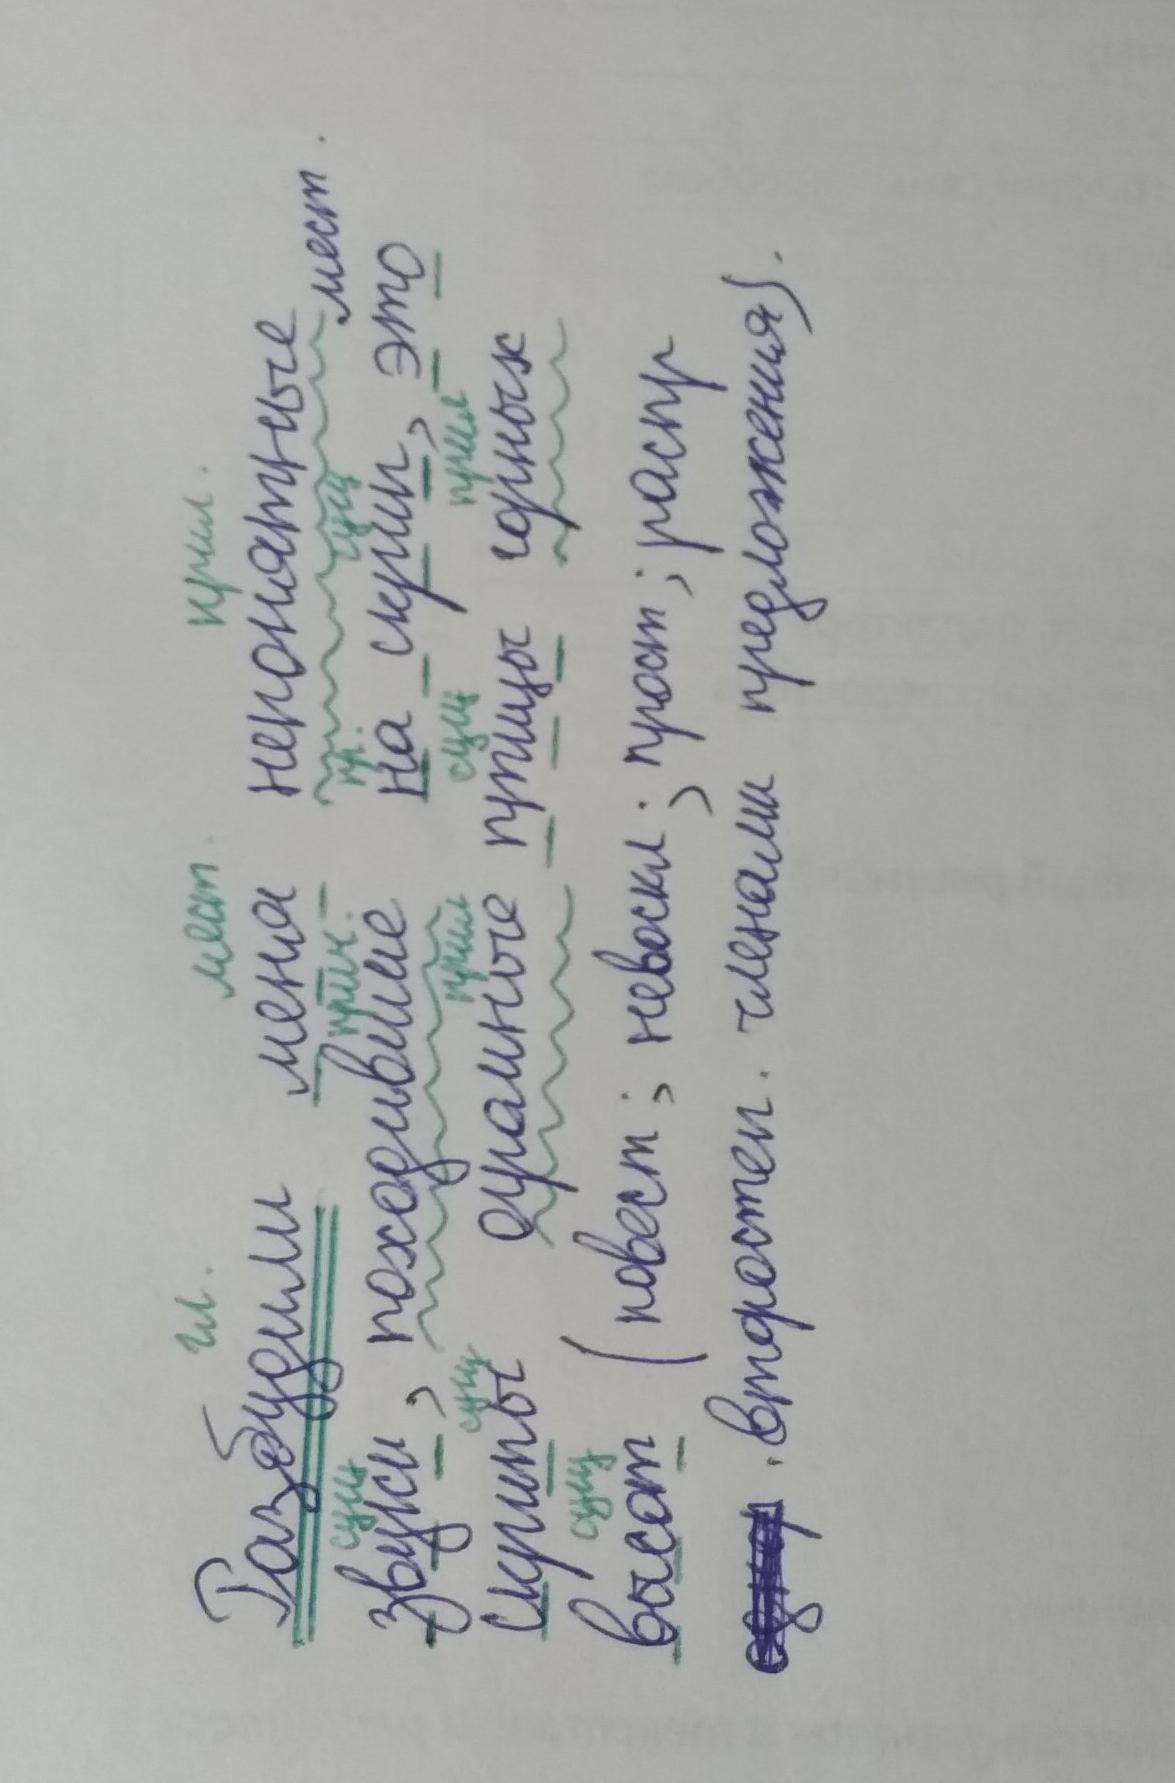 гл. мест. прил.
Разбудили меня непонятные
сущ прич. пр. сущ мест.
звуки, походившие на скрип, это
сущ прил сущ прил
скрипы ограмные птицы горных
сущ
высот (повест; невоскл.; прост; распр
. второстеп. членами предложения).